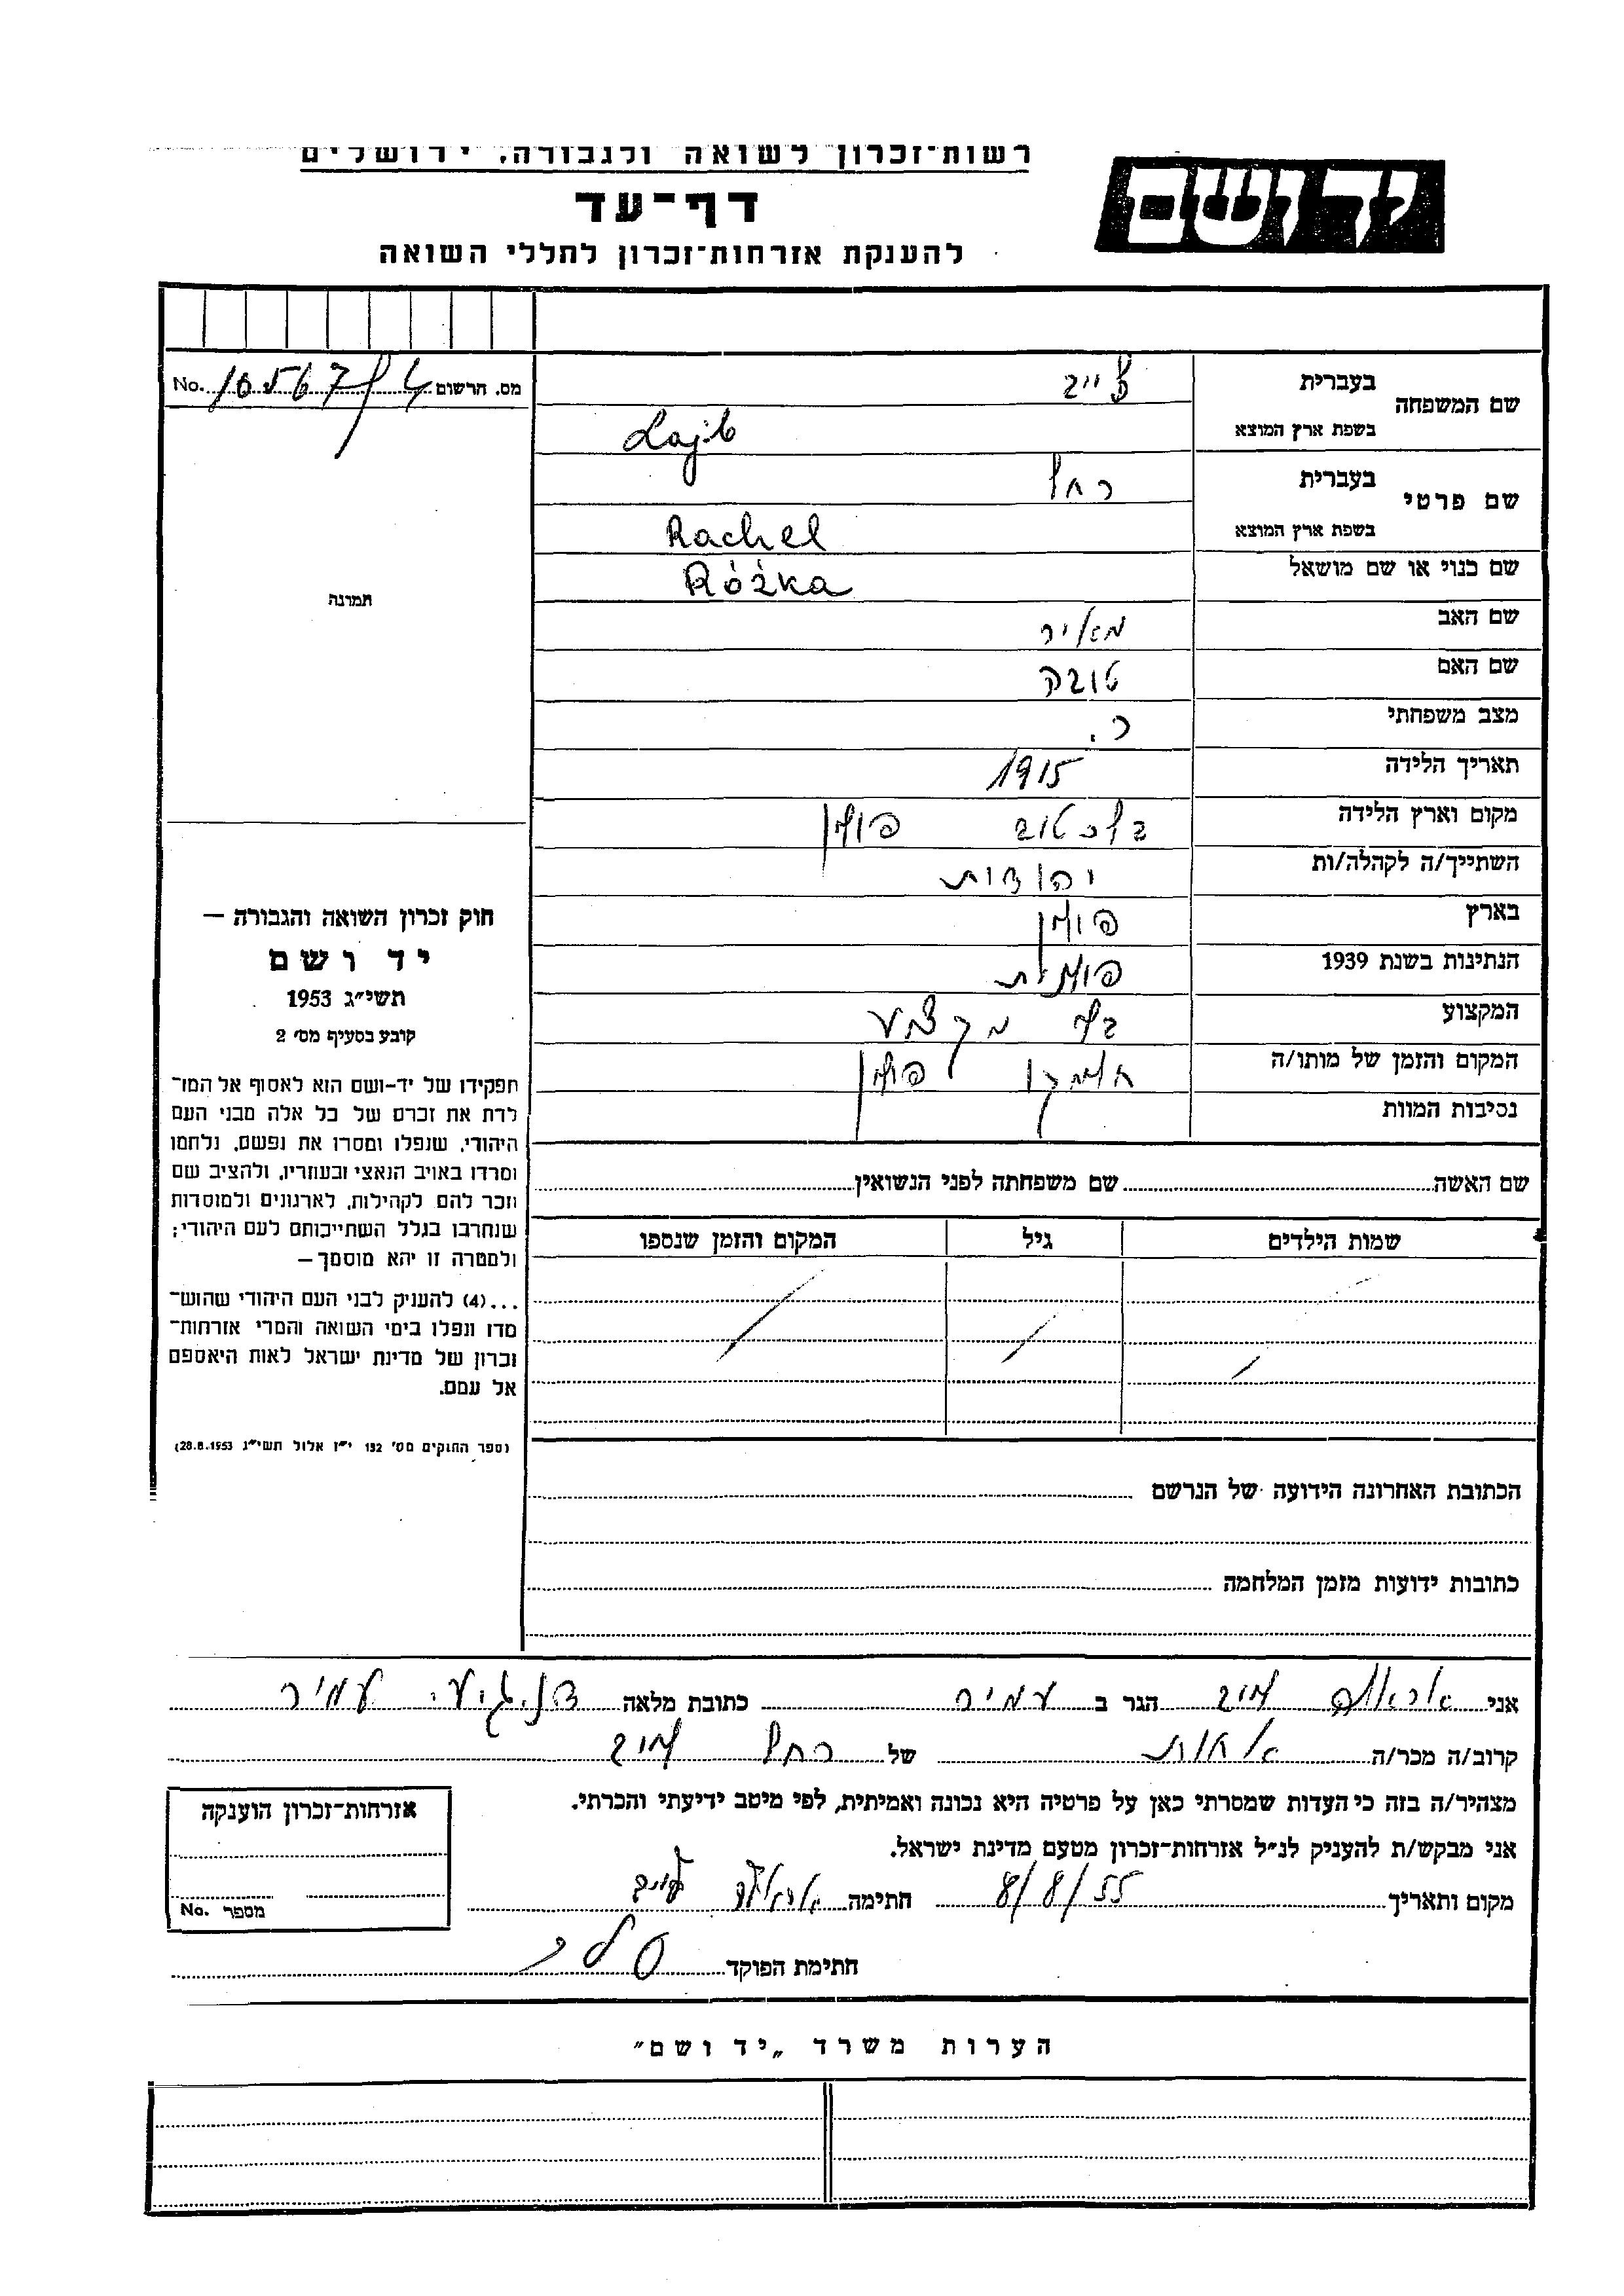 רשות־זכרון לשואה ולגבורה, ירושלים
יד ושם
דף־עד
להענקת אזרחות־זכרון לחללי השואה
מס. הרשום No. 10567
שם המשפחה
בעברית לייב
בשפת ארץ המוצא Lajb
שם פרטי
בעברית רחל
בשפת ארץ המוצא Rachel
שם כנוי או שם מושאל Różka
שם האב מאיר
שם האם טובה
מצב משפחתי ר.
תאריך הלידה 1915
מקום וארץ הלידה פולין
השתייך/ה לקהלה/ות יהודית
בארץ פולין
הנתינות בשנת 1939 פולנית
המקצוע בלי מקצוע
המקום והזמן של מותו/ה פולין
נסיבות המוות
תמונה
חוק זכרון השואה והגבורה —
יד ושם
תשי״ג 1953
קובע בסעיף מס׳ 2
תפקידו של יד-ושם הוא לאסוף אל המו־
לדת את זכרם של כל אלה מבני העם
היהודי, שנפלו ומסרו את נפשם, נלחמו
ומרדו באויב הנאצי ובעוזריו, ולהציב שם
וזכר להם לקהילות, לארגונים ולמוסדות
שנחרבו בגלל השתייכותם לעם היהודי;
ולמטרה זו יהא מוסמך—
...(4) להעניק לבני העם היהודי שהוש־
מדו ונפלו בימי השואה והמרי אזרחות־
זכרון של מדינת ישראל לאות היאספם
אל עמם.
(ספר החוקים מס׳ 132 י״ז אלול תשי״ג 28.8.1953)
שם האשה שם משפחתה לפני הנשואין
שמות הילדים גיל המקום והזמן שנספו
הכתובת האחרונה הידועה של הנרשם
כתובות ידועות מזמן המלחמה
אני לייב הגר ב עמיר כתובת מלאה עמיר
קרוב/ה מכר/ה אחות של רחל לייב
מצהיר/ה בזה כי העדות שמסרתי כאן על פרטיה היא נכונה ואמיתית, לפי מיטב ידיעתי והכרתי.
אני מבקש/ת להעניק לנ״ל אזרחות־זכרון מטעם מדינת ישראל.
מקום ותאריך 8/8/55 חתימה לייב
חתימת הפוקד
אזרחות־זכרון הוענקה
מספר No.
הערות משרד „יד ושם״